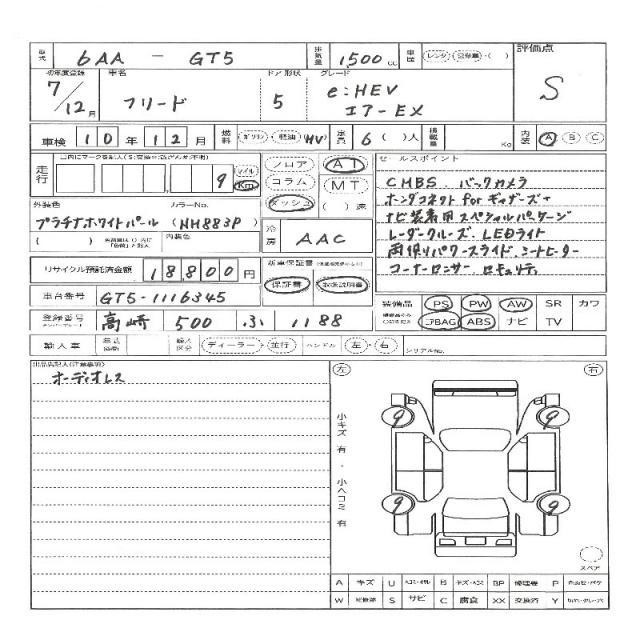 型式 6AA - GT5 排気量 1500 cc 車歴 レンタ・ ・( ) 評価点
初年度登録 車名 ドア形状 グレード
7/12月 フリード 5 e:HEV エアーEX S
車検 10年12月 燃料 ガソリン・軽油・(HV) 定員 6( )人 積載量 Kg 内装 A B C
走行 9 マイル Km フロア AT セールスポイント
コラム MT CMBS. バックカメラ
外装色 カラーNo. ダッシュ ( )速 ホンダコネクト for ギャザーズ+
プラチナホワイトパール (NH883P) ナビ装着用スペシャルパッケージ
( ) 内装色 冷房 AAC レーダークルーズ. LEDライト
両側パワースライド. シートヒーター
リサイクル預託済金額 18800円 新車保証書 保証書・取扱説明書 コーナーセンサー. セキュリティ
車台番号 GT5-1116345 装備品 PS PW AW SR カワ
登録番号 高崎 500 ふ 1188 エアBAG ABS ナビ TV
輸入車 年式 輸入区分 ディーラー・並行 ハンドル 左・右 シリアルNo.
オーディオレス
左 右
小キズ有・小ヘコミ有
9 9
9 9
スペア
A キズ U B キズ・ヘコ BP 修理機 P
W S サビ C 腐食 XX 交換済 Y